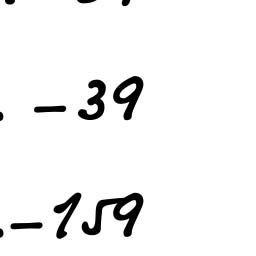 . – 39
. – 159